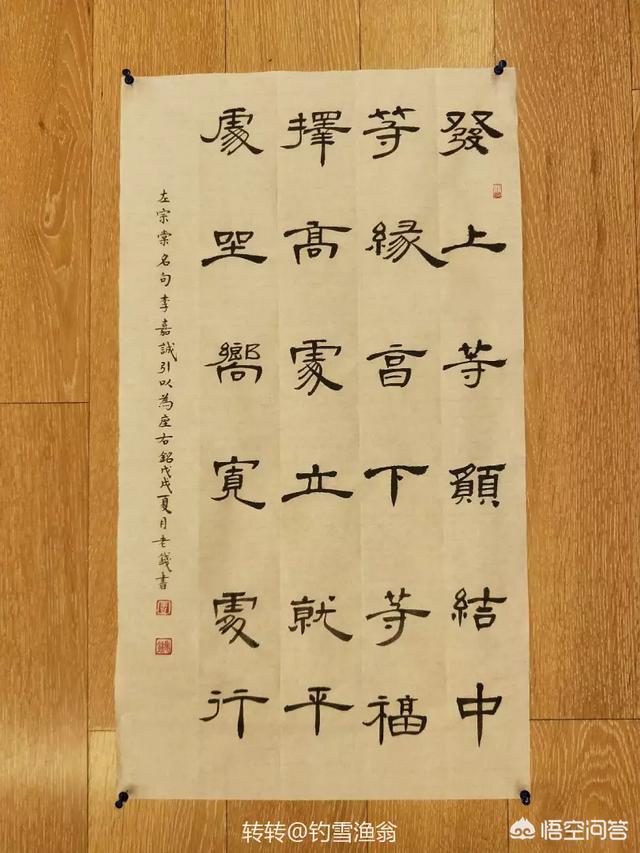 發上等願結中
等緣亯下等福
擇高處立就平
處坐嚮寬處行
左宗棠名句李嘉誠引以為座右銘戊戌夏月老錢書
转转@钓雪渔翁
悟空问答